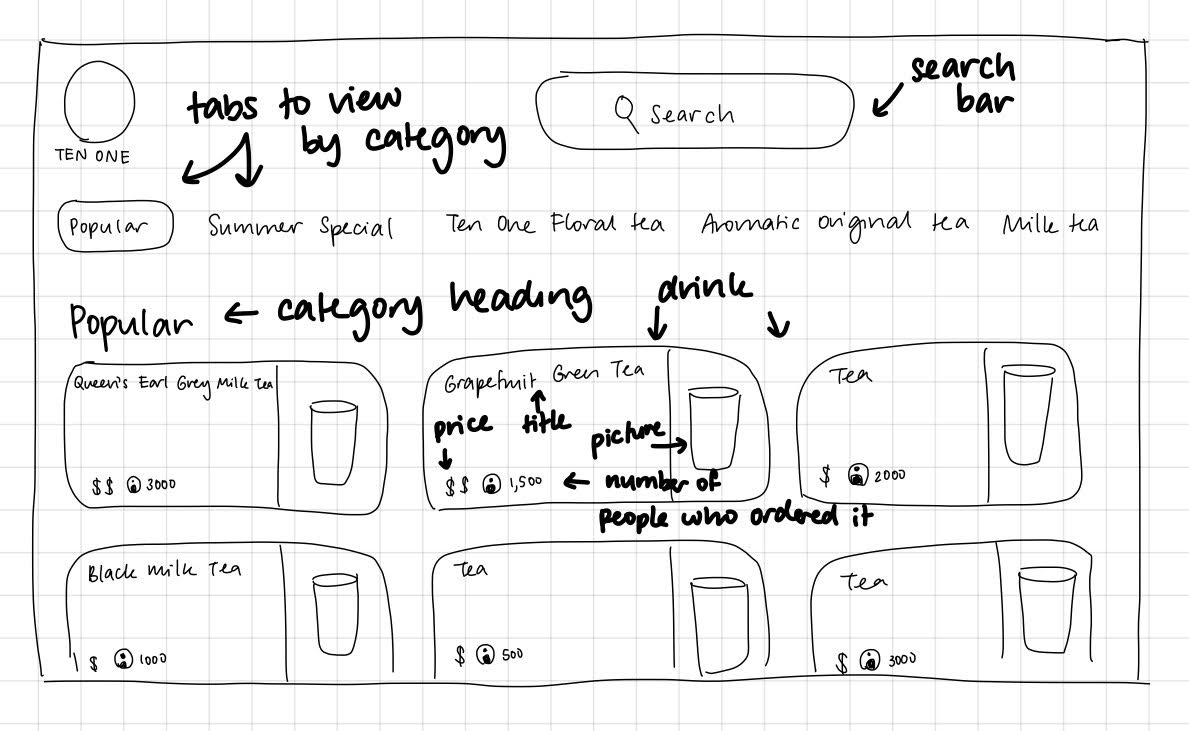 search
bar
tabs to view
by category
Search
TEN ONE
Popular
Summer Special
Ten One Floral tea
Aromatic original tea
Milk tea
Popular
← category heading
drink
Queen's Earl Grey Milk Tea
$$ 3000
Grapefruit Green Tea
price
title
picture
$$ 1,500
← number of
people who ordered it
Tea
$ 2000
Black milk Tea
$ 1000
Tea
$ 500
Tea
$ 3000